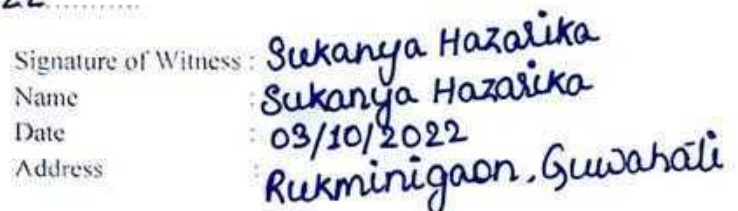 22...........
Signature of Witness : Sukanya Hazarika
Name : Sukanya Hazarika
Date : 03/10/2022
Address : Rukminigaon, Guwahati